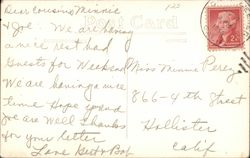 Dear Cousins Minnie
& Joe. We are having
a nice rest had
Guests for Weekend
We are having a nice
time Hope you and
Joe are Well & thanks
for your letter
Love Gert & Bob
Post Card
Miss Minnie Perez
866-4th Street
Hollister
Calif
2¢